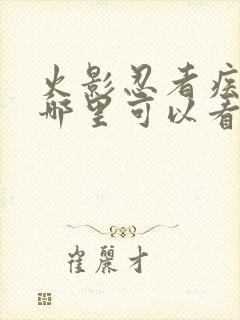 火影忍者疾
哪里可以看
崔丽才